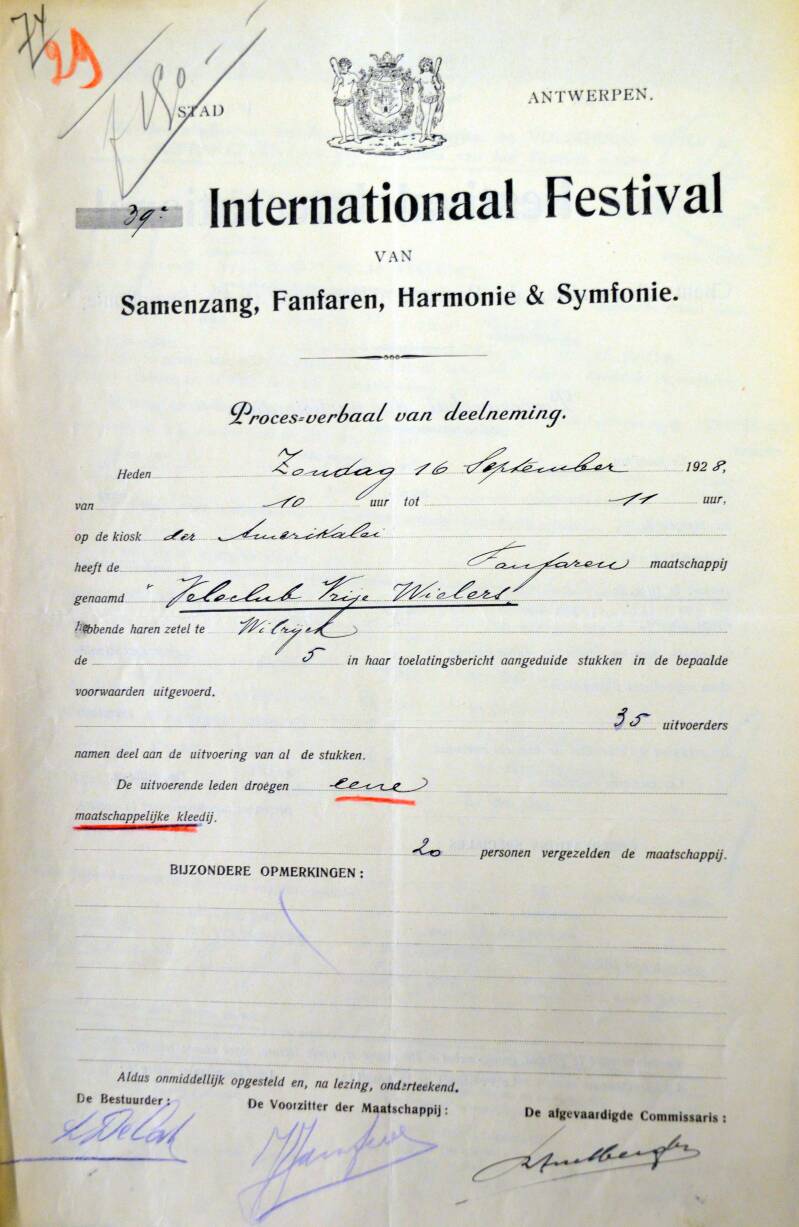 74
29
STAD ANTWERPEN.
39e Internationaal Festival
VAN
Samenzang, Fanfaren, Harmonie & Symfonie.
Proces=verbaal van deelneming.
Heden Zondag 16 September 1928,
van 10 uur tot 11 uur,
op de kiosk der Amerikalei
heeft de Fanfaren maatschappij
genaamd " Veloclub Vrije Wielers.
hebbende haren zetel te Wilrijck
de 5 in haar toelatingsbericht aangeduide stukken in de bepaalde
voorwaarden uitgevoerd.
35 uitvoerders
namen deel aan de uitvoering van al de stukken.
De uitvoerende leden droegen eene
maatschappelijke kleedij.
20 personen vergezelden de maatschappij.
BIJZONDERE OPMERKINGEN :
Aldus onmiddellijk opgesteld en, na lezing, onderteekend.
De Bestuurder : De Voorzitter der Maatschappij : De afgevaardigde Commissaris :